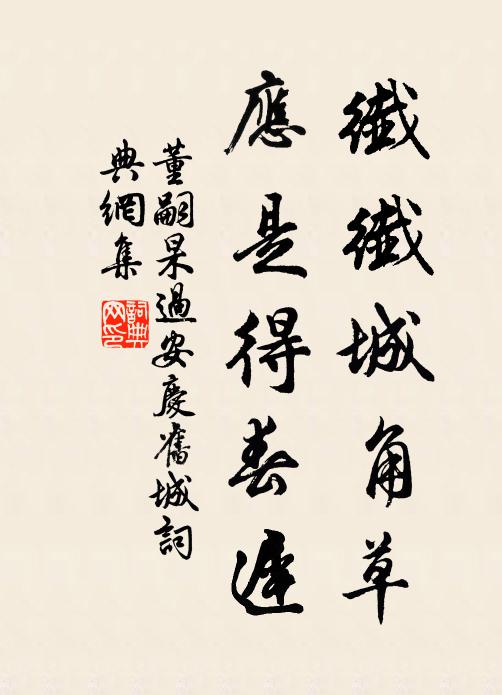 纖纖城角草
應是得春遲
董嗣杲過安慶舊城詞
典網集
詞典
网印